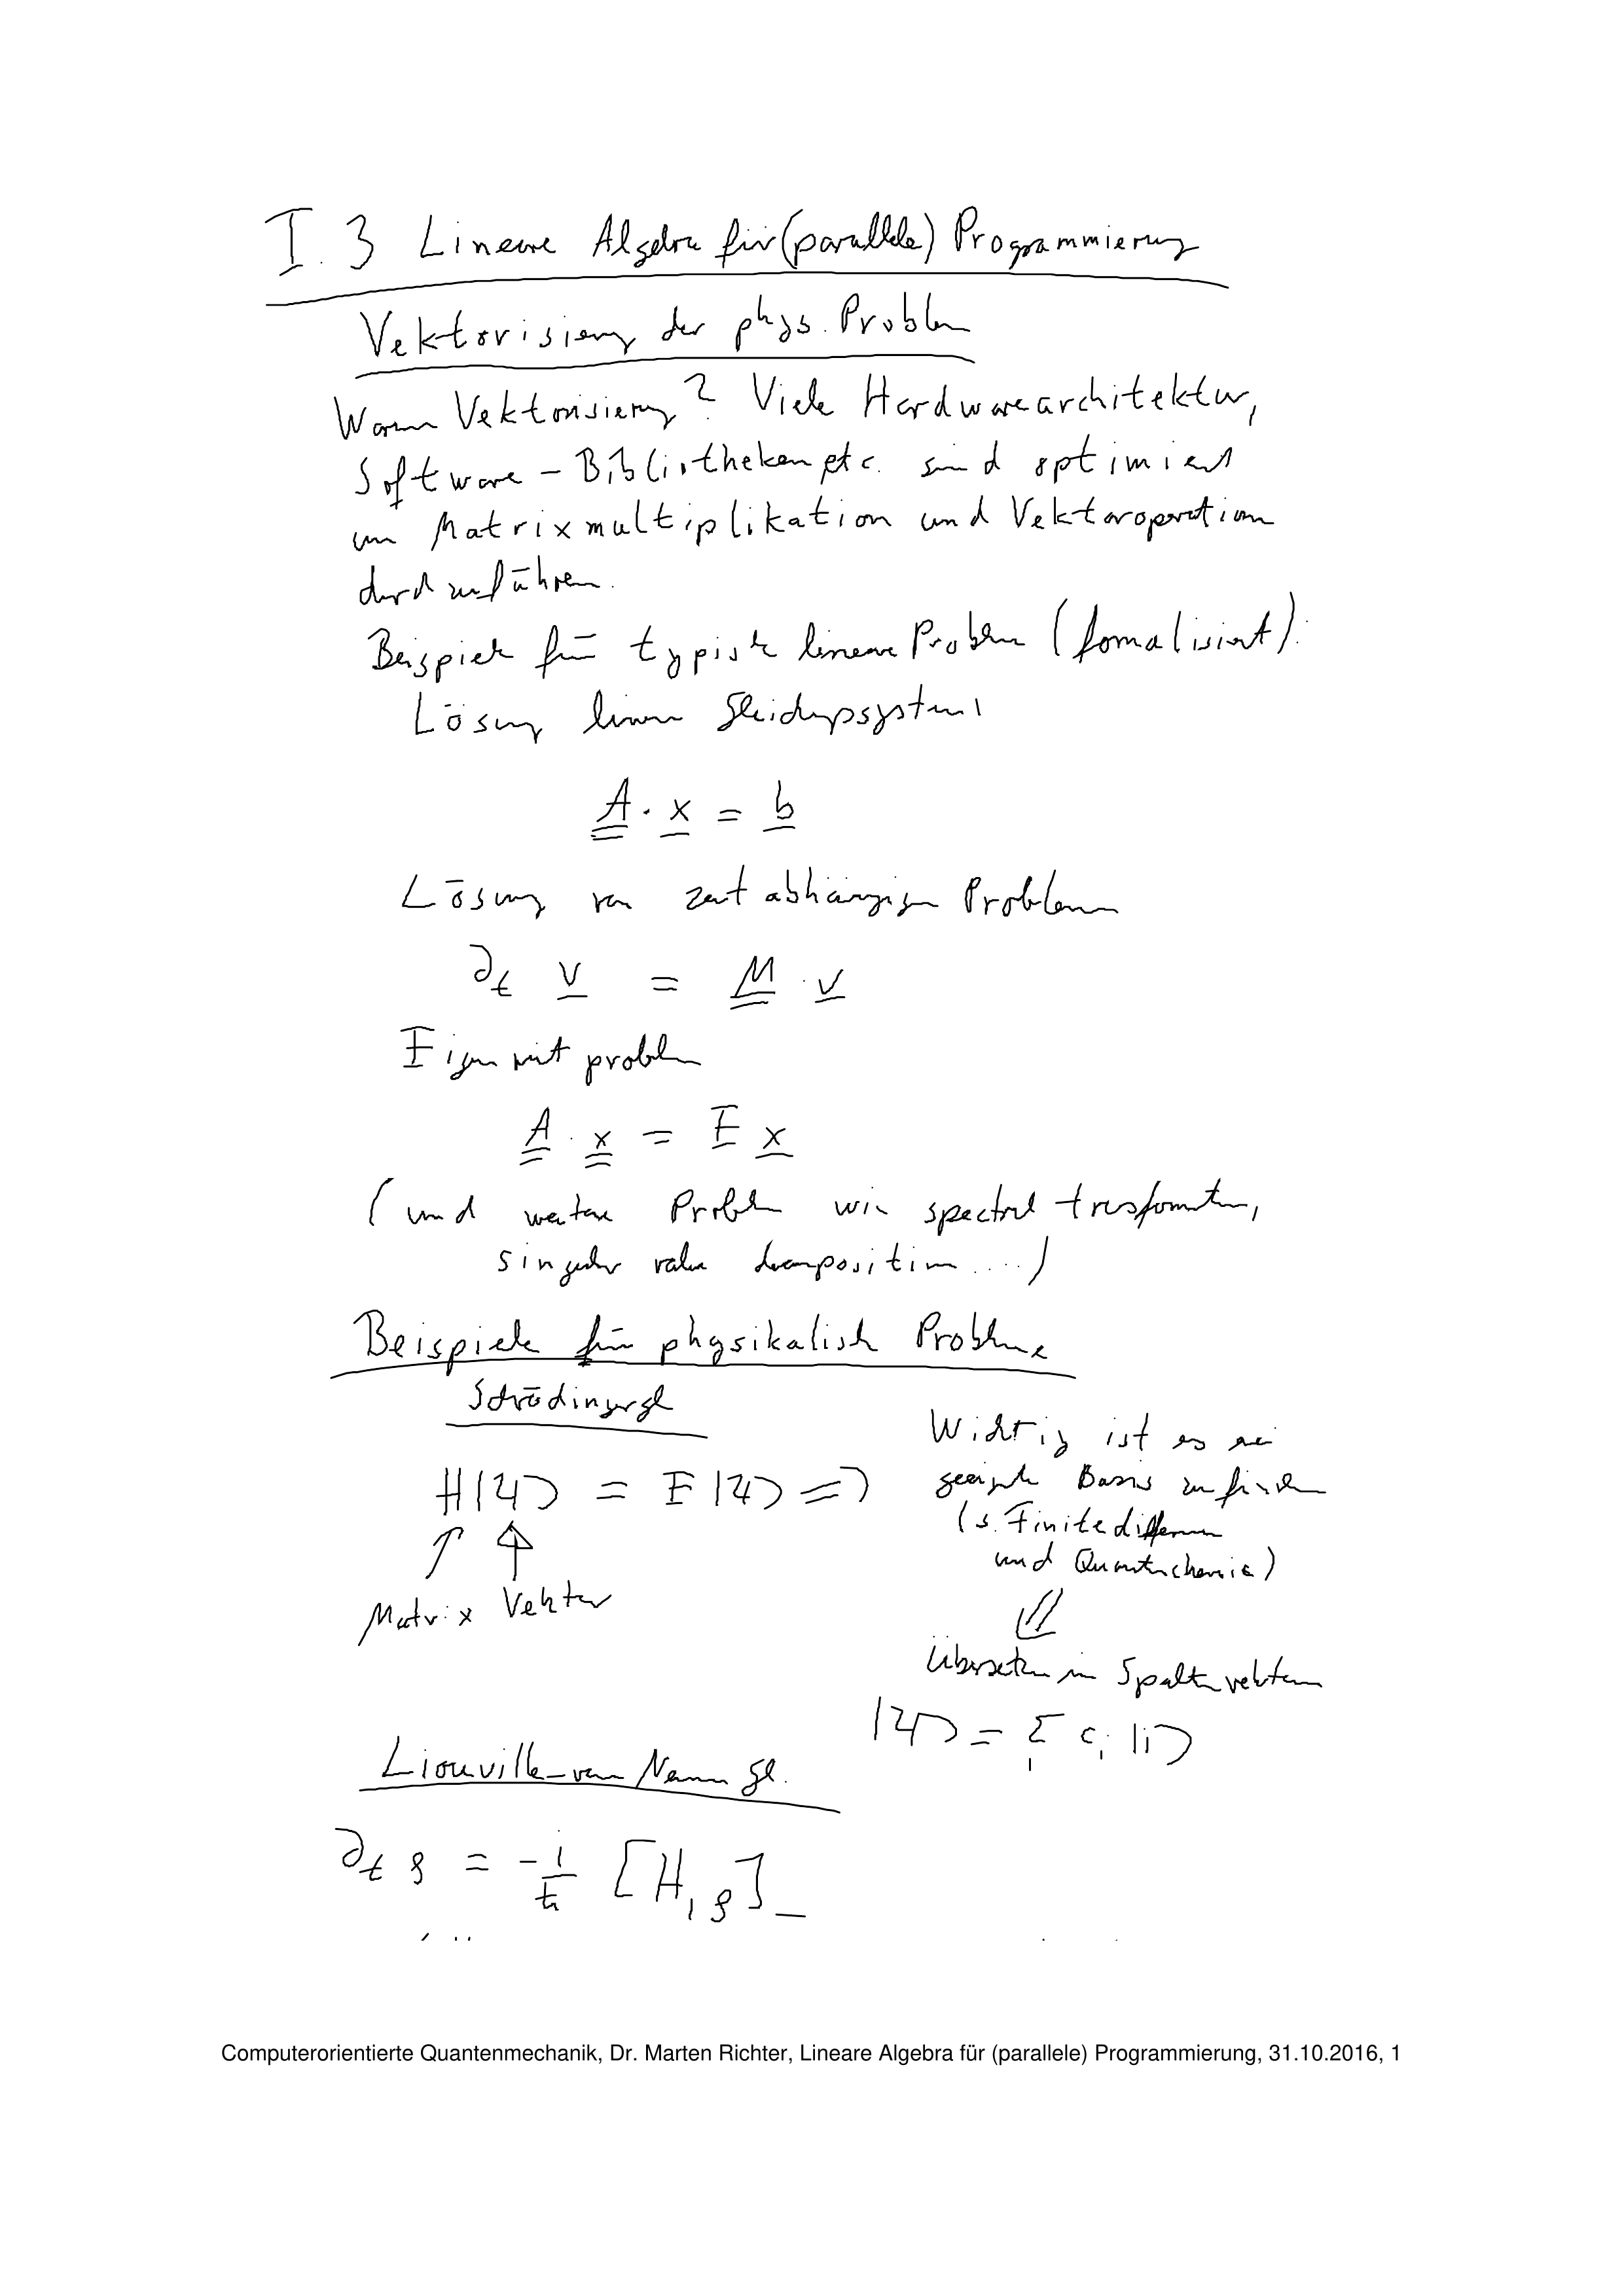 I.3 Lineare Algebra für (parallele) Programmierung
Vektorisierung der phys. Probleme
Warum Vektorisierung? Viele Hardwarearchitektur,
Software-Bibliotheken etc. sind optimiert
um Matrixmultiplikation und Vektoroperationen
durchzuführen.
Beispiele für typische lineare Probleme (formalisiert):
Lösung linearer Gleichungssysteme
A · x = b
Lösung von zeitabhängigen Problemen
∂t v = M · v
Eigenwertproblem
A · x = E x
(und weitere Probleme wie spectral transformation,
singular value decomposition....)
Beispiele für physikalische Probleme
Schrödingergl
H|ψ⟩ = E|ψ⟩ ⇒
Matrix Vektor
Wichtig ist es eine
geeignete Basis zu finden
(s. Finite differenzen
und Quantenchemie)
⇓
Übersetzen in Spaltenvektoren
|ψ⟩ = Σi ci |i⟩
Liouville-von Neumann gl.
∂t ρ = -i/ħ [H, ρ]_
Computerorientierte Quantenmechanik, Dr. Marten Richter, Lineare Algebra für (parallele) Programmierung, 31.10.2016, 1